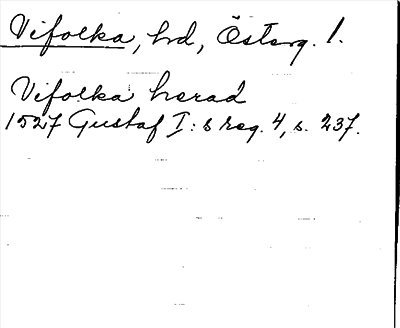 Vifolka, hd, Österg. l.
Vifolka herad
1527 Gustaf I:s reg. 4, s. 237.